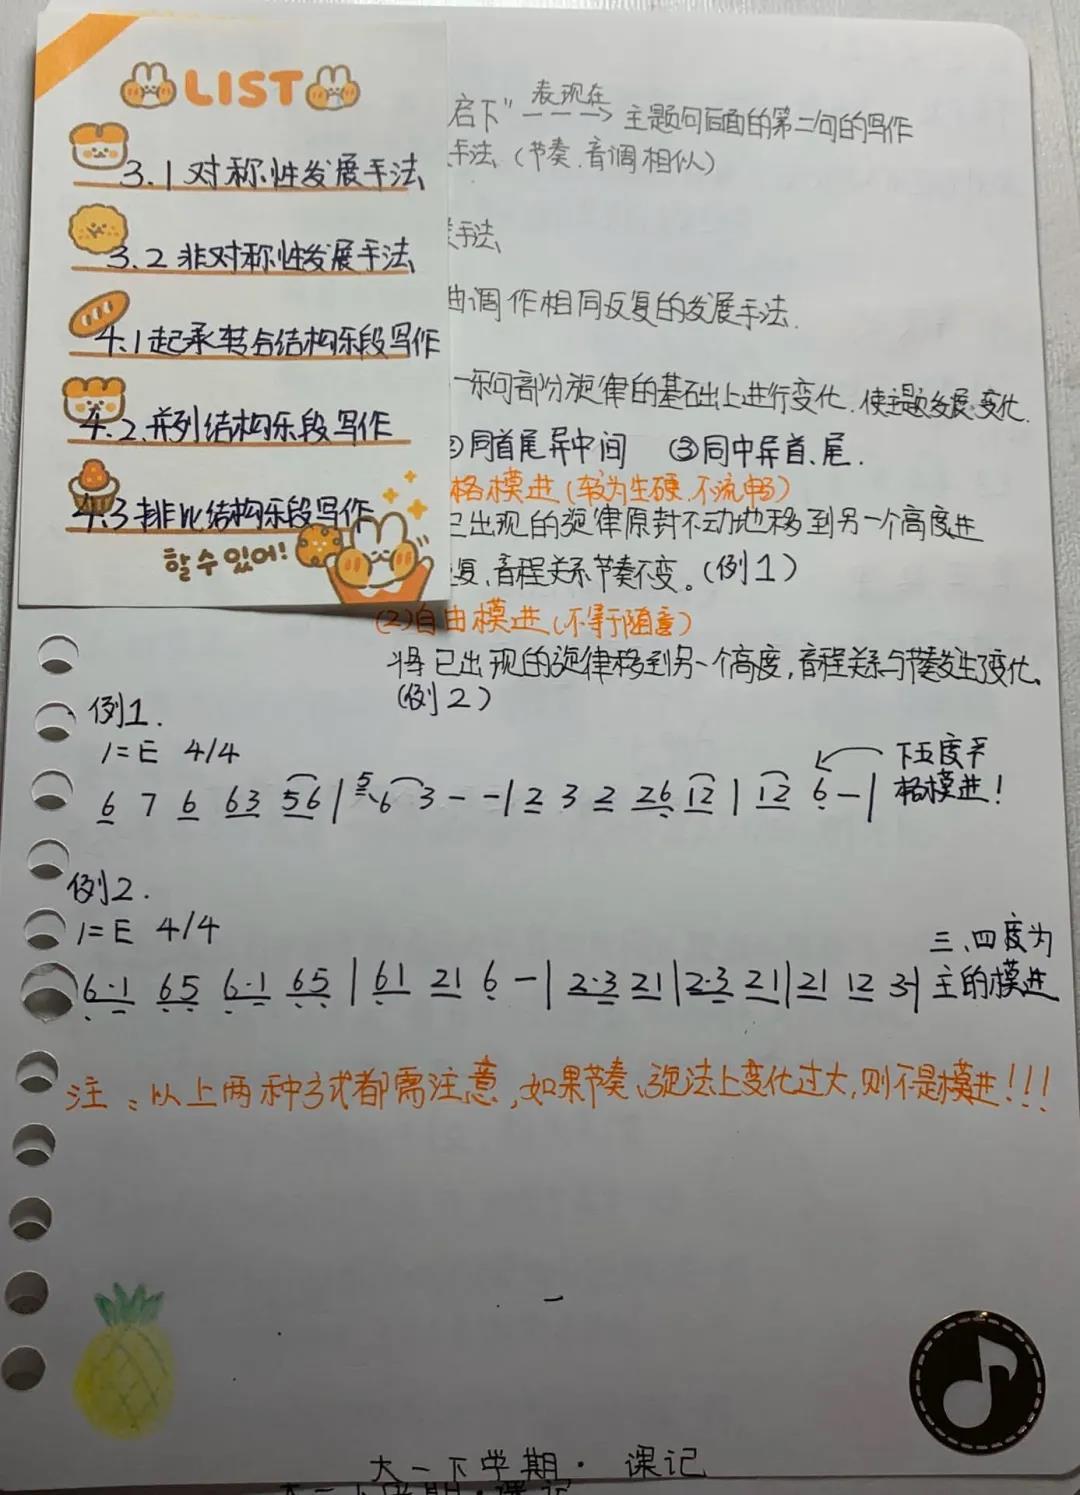 LIST
3.1 对称性发展手法
3.2 非对称性发展手法
4.1 起承转合结构乐段写作
4.2. 并列结构乐段写作
4.3 排比结构乐段写作
할 수 있어!
启下" 表现在 主题句后面的第二句的写作
手法 (节奏、音调相似)
手法
曲调作相同反复的发展手法.
一乐句部分旋律的基础上进行变化.使主题发展、变化.
②同首尾异中间 ③同中异首、尾.
格模进(较为生硬.不流畅)
已出现的旋律原封不动地移到另一个高度进
复、音程关系节奏不变。(例1)
(2)自由模进(不等于随意)
将已出现的旋律移到另一个高度,音程关系与节奏发生了变化.
(例2)
例1.
1=E 4/4
下五度平
格模进!
6 7 6 63 56 | 5 6 3 - - | 2 3 2 26 12 | 12 6 - |
例2.
1=E 4/4
三、四度为
主的模进
6·1 65 6·1 65 | 61 21 6 - | 2·3 21 | 2·3 21 | 21 12 3 |
注:以上两种方式都需注意,如果节奏、旋法上变化过大,则不是模进!!!
大一下学期· 课记